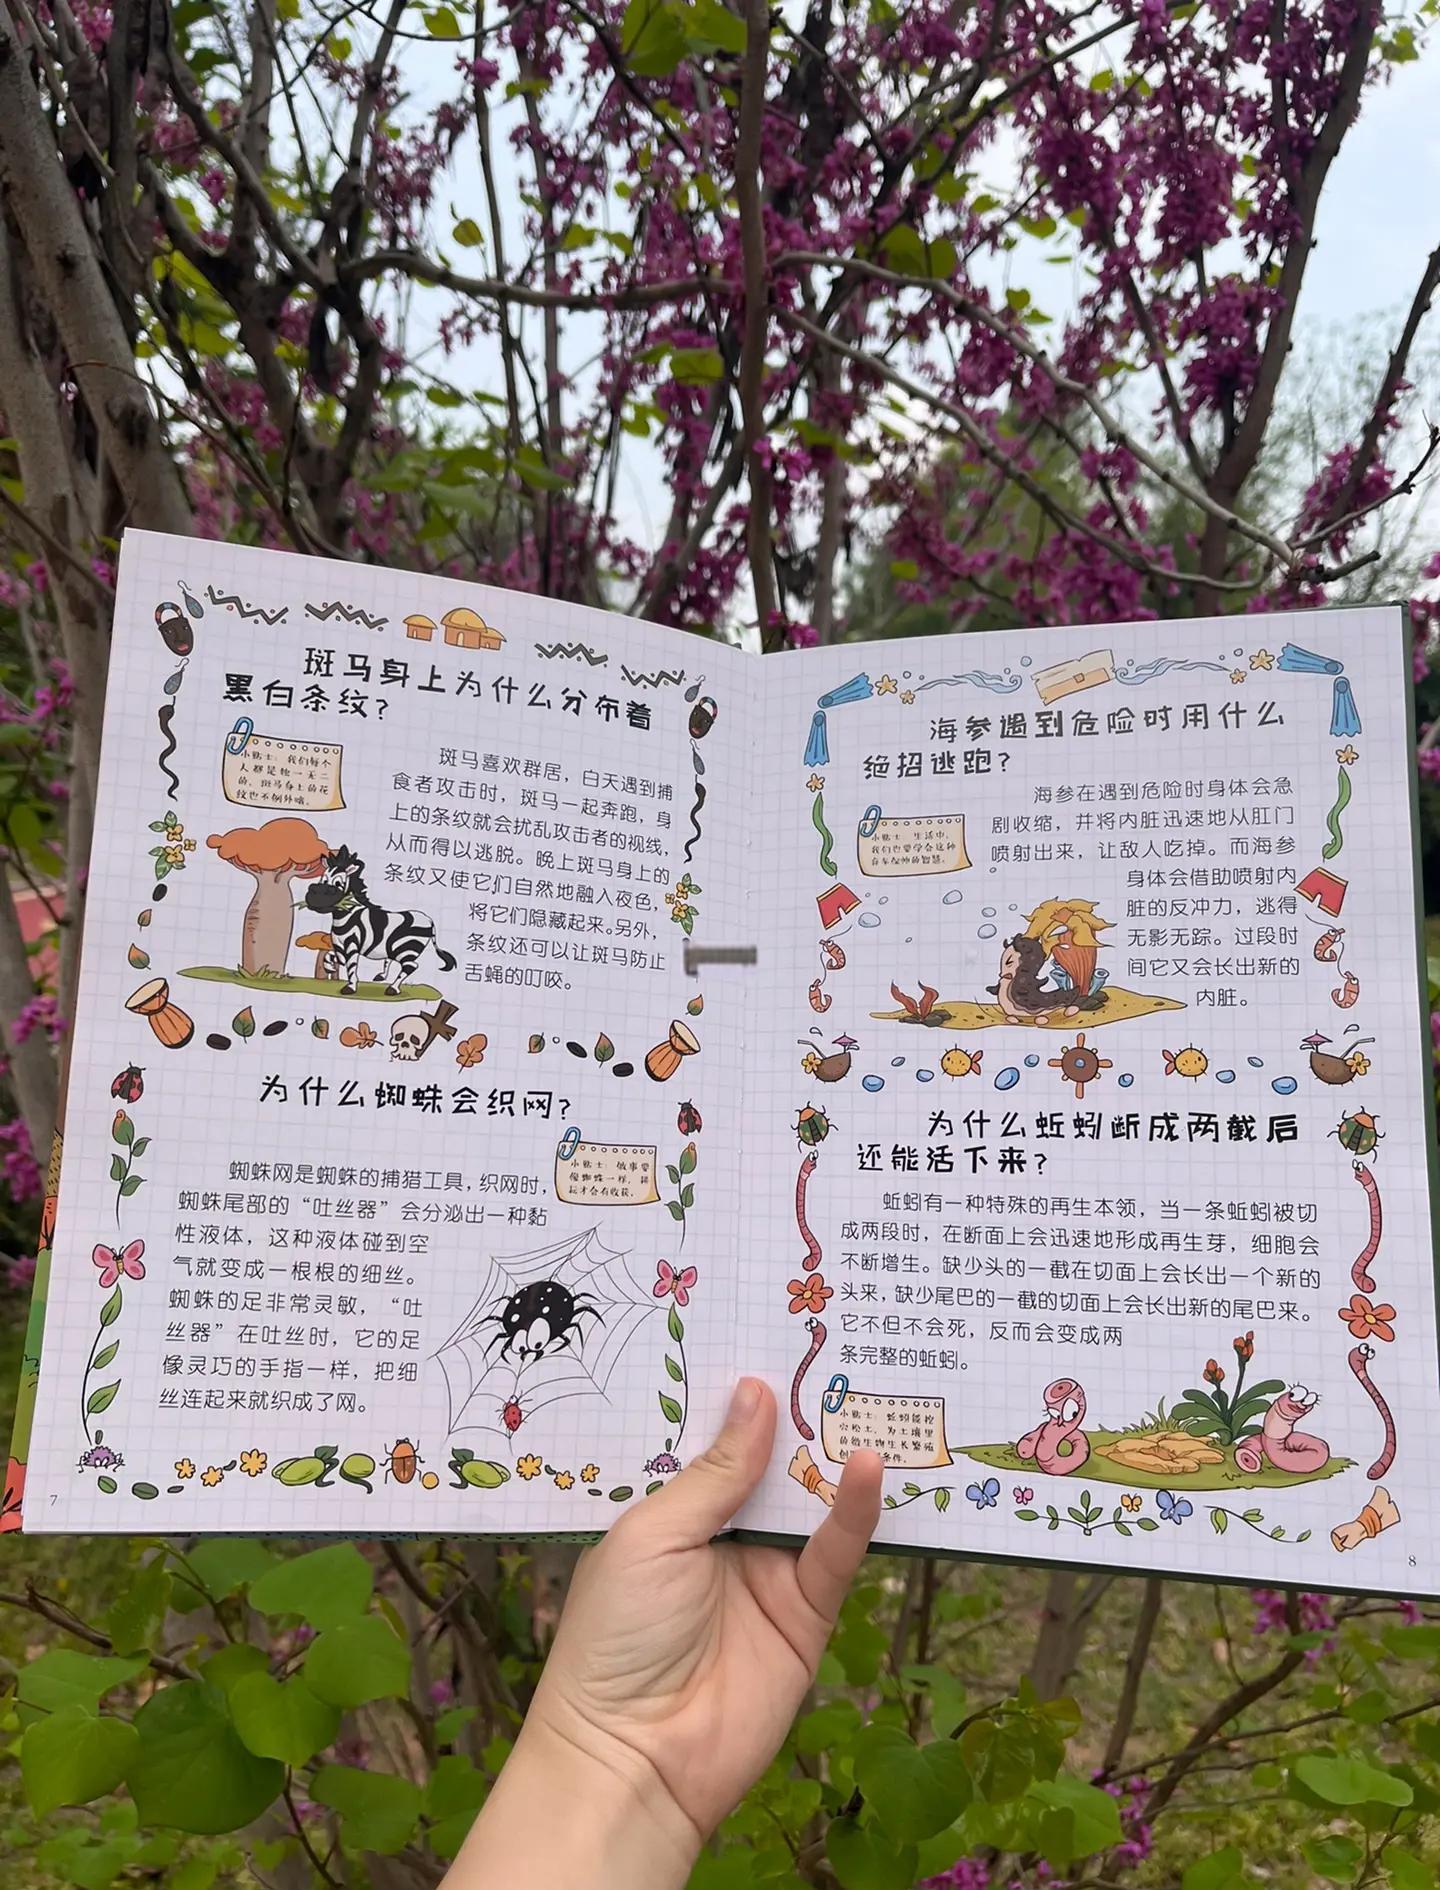 斑马身上为什么分布着
黑白条纹?
小贴士：我们每个
人都是独一无二
的，斑马身上的花
纹也不例外哦。
斑马喜欢群居，白天遇到捕
食者攻击时，斑马一起奔跑，身
上的条纹就会扰乱攻击者的视线，
从而得以逃脱。晚上斑马身上的
条纹又使它们自然地融入夜色，
将它们隐藏起来。另外，
条纹还可以让斑马防止
舌蝇的叮咬。
为什么蜘蛛会织网?
小贴士：做事要
像蜘蛛一样，耕
耘才会有收获。
蜘蛛网是蜘蛛的捕猎工具，织网时，
蜘蛛尾部的“吐丝器”会分泌出一种黏
性液体，这种液体碰到空
气就变成一根根的细丝。
蜘蛛的足非常灵敏，“吐
丝器”在吐丝时，它的足
像灵巧的手指一样，把细
丝连起来就织成了网。
7
海参遇到危险时用什么
绝招逃跑?
小贴士：生活中，
我们也要学会这种
弃车保帅的智慧。
海参在遇到危险时身体会急
剧收缩，并将内脏迅速地从肛门
喷射出来，让敌人吃掉。而海参
身体会借助喷射内
脏的反冲力，逃得
无影无踪。过段时
间它又会长出新的
内脏。
为什么蚯蚓断成两截后
还能活下来?
蚯蚓有一种特殊的再生本领，当一条蚯蚓被切
成两段时，在断面上会迅速地形成再生芽，细胞会
不断增生。缺少头的一截在切面上会长出一个新的
头来，缺少尾巴的一截的切面上会长出新的尾巴来。
它不但不会死，反而会变成两
条完整的蚯蚓。
小贴士：蚯蚓能挖
穴松土，为土壤里
的微生物生长繁殖
创条件。
8